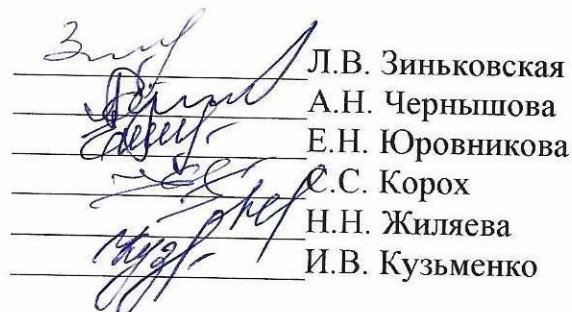 Л.В. Зиньковская
А.Н. Чернышова
Е.Н. Юровникова
С.С. Корох
Н.Н. Жиляева
И.В. Кузьменко